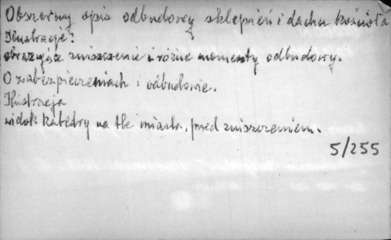 Obszerny opis odbudowy sklepień i dachu kościoła
Ilustracje:
obrazujące zniszczenie i różne momenty odbudowy.
O zabezpieczeniach i odbudowie.
Ilustracja
widok katedry na tle miasta, przed zniszczeniem.
5/255